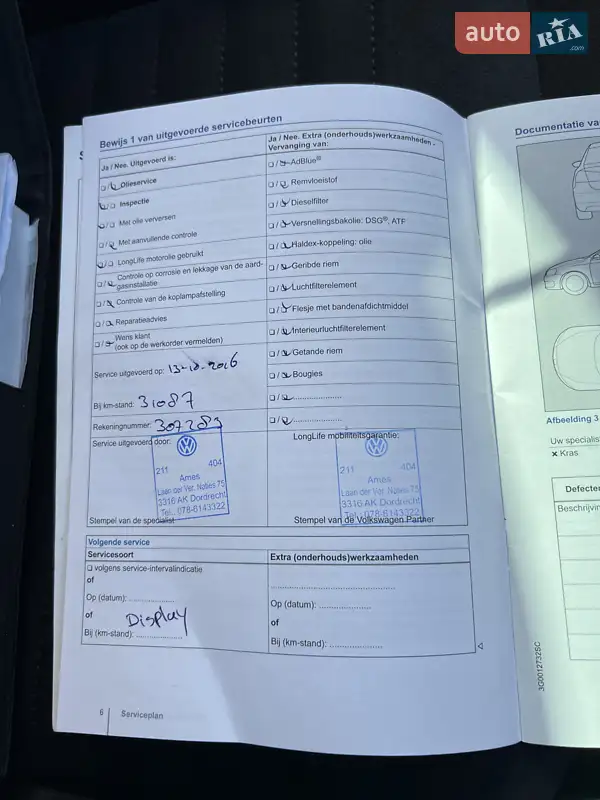 auto RIA .com
Bewijs 1 van uitgevoerde servicebeurten
Ja / Nee. Uitgevoerd is:
❑ / ❑ Olieservice
❑ / ❑ Inspectie
❑ / ❑ Met olie verversen
❑ / ❑ Met aanvullende controle
❑ / ❑ LongLife motorolie gebruikt
❑ / ❑ Controle op corrosie en lekkage van de aard-
gasinstallatie
❑ / ❑ Controle van de koplampafstelling
❑ / ❑ Reparatieadvies
❑ / ❑ Wens klant
(ook op de werkorder vermelden)
Service uitgevoerd op: 13-10-2016
Bij km-stand: 31087
Rekeningnummer: 307283
Service uitgevoerd door:
211 404
Ames
Laan der Ver. Naties 75
3316 AK Dordrecht
Tel. 078-6143322
Stempel van de specialist
Ja / Nee. Extra (onderhouds)werkzaamheden -
Vervanging van:
❑ / ❑ AdBlue®
❑ / ❑ Remvloeistof
❑ / ❑ Dieselfilter
❑ / ❑ Versnellingsbakolie: DSG®, ATF
❑ / ❑ Haldex-koppeling: olie
❑ / ❑ Geribde riem
❑ / ❑ Luchtfilterelement
❑ / ❑ Flesje met bandenafdichtmiddel
❑ / ❑ Interieurluchtfilterelement
❑ / ❑ Getande riem
❑ / ❑ Bougies
❑ / ❑ ......................
❑ / ❑ ......................
LongLife mobiliteitsgarantie:
211 404
Ames
Laan der Ver. Naties 75
3316 AK Dordrecht
Tel. 078-6143322
Stempel van de Volkswagen Partner
Volgende service
Servicesoort
❑ volgens service-intervalindicatie
of
Op (datum): ....................
of Display
Bij (km-stand): ....................
Extra (onderhouds)werkzaamheden
....................
Op (datum): ....................
of
Bij (km-stand): ....................
6 Serviceplan
Documentatie va
Afbeelding 3
Uw specialis
× Kras
Defecten
Beschrijvin
3G0012732SC